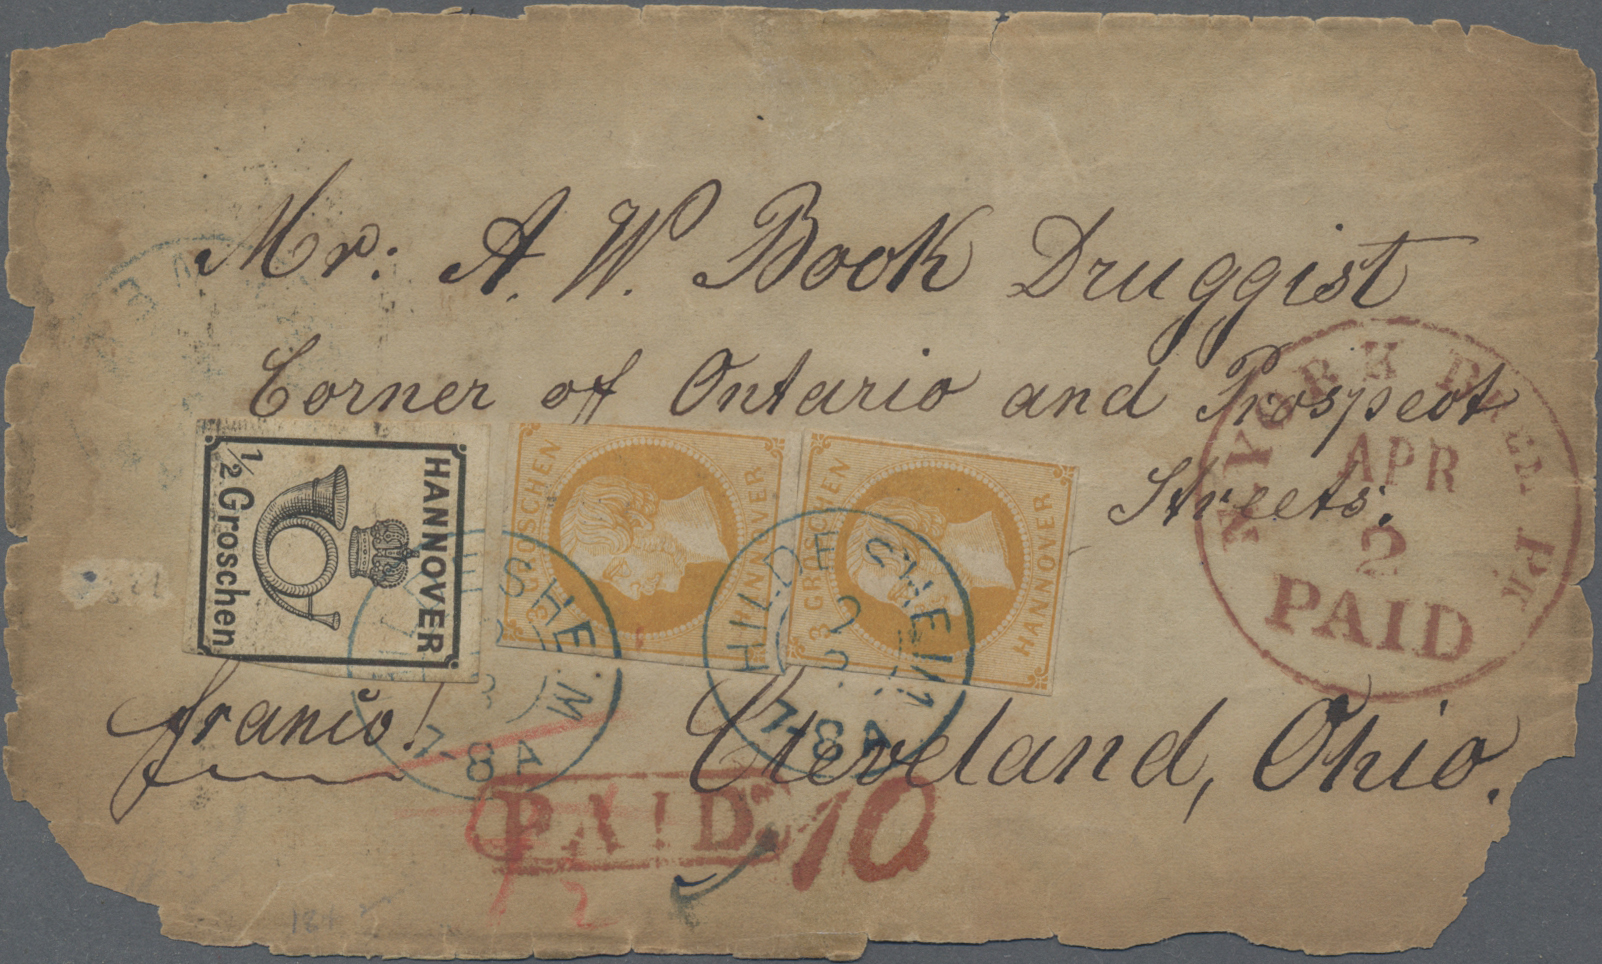 Mr: A. W. Book Druggist
Corner of Ontario and Prospect
Streets.
Cleveland, Ohio.
franco!
HANNOVER
1/2 Groschen
3 GROSCHEN
HANNOVER
3 GROSCHEN
HANNOVER
HILDESHEIM
7-8 A
HILDESHEIM
7-8 A
N. YORK BREM. PK
APR
2
PAID
PAID
10
2